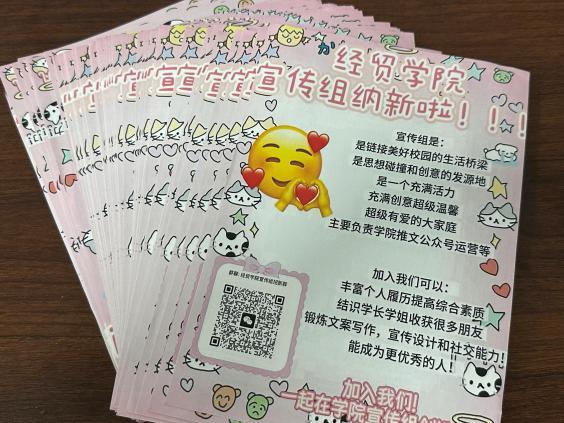 经贸学院
宣传组纳新啦！！！
宣传组是：
是链接美好校园的生活桥梁
是思想碰撞和创意的发源地
是一个充满活力
充满创意超级温馨
超级有爱的大家庭
主要负责学院推文公众号运营等
群聊: 经贸学院宣传组招新群
加入我们可以：
丰富个人履历提高综合素质
结识学长学姐收获很多朋友
锻炼文案写作，宣传设计和社交能力！
能成为更优秀的人！
加入我们!
一起在学院宣传组